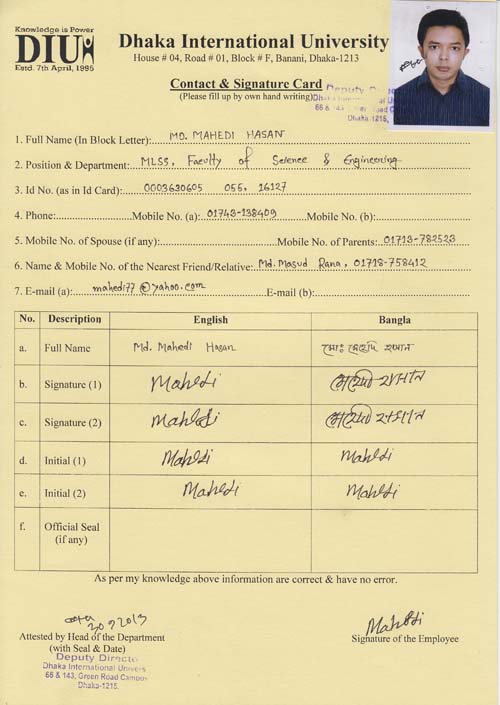 Knowledge is Power
DIU
Estd. 7th April, 1995
Dhaka International University
House # 04, Road # 01, Block # F, Banani, Dhaka-1213
Contact & Signature Card
(Please fill up by own hand writing)
Deputy Director
Dhaka
66 & 143, Green Road C
Dhaka-1215.
1. Full Name (In Block Letter): MD. MAHEDI HASAN
2. Position & Department: MLSS, Faculty of Science & Engineering
3. Id No. (as in Id Card): 0003630605 055, 16127
4. Phone: Mobile No. (a): 01743-138409 Mobile No. (b):
5. Mobile No. of Spouse (if any): Mobile No. of Parents: 01713-782523
6. Name & Mobile No. of the Nearest Friend/Relative: Md. Masud Rana, 01718-758412
7. E-mail (a): mahedi77@yahoo.com E-mail (b):
No. Description English Bangla
a. Full Name Md. Mahedi Hasan মোঃ মেহেদি হাসান
b. Signature (1) Mahedi মেহেদী হাসান
c. Signature (2) Mahedi মেহেদী হাসান
d. Initial (1) Mahedi Mahedi
e. Initial (2) Mahedi Mahedi
f. Official Seal
(if any)
As per my knowledge above information are correct & have no error.
Mahedi
Attested by Head of the Department
(with Seal & Date)
Signature of the Employee
Deputy Directo
Dhaka International Univers
66 & 143, Green Road Campus
Dhaka-1215.